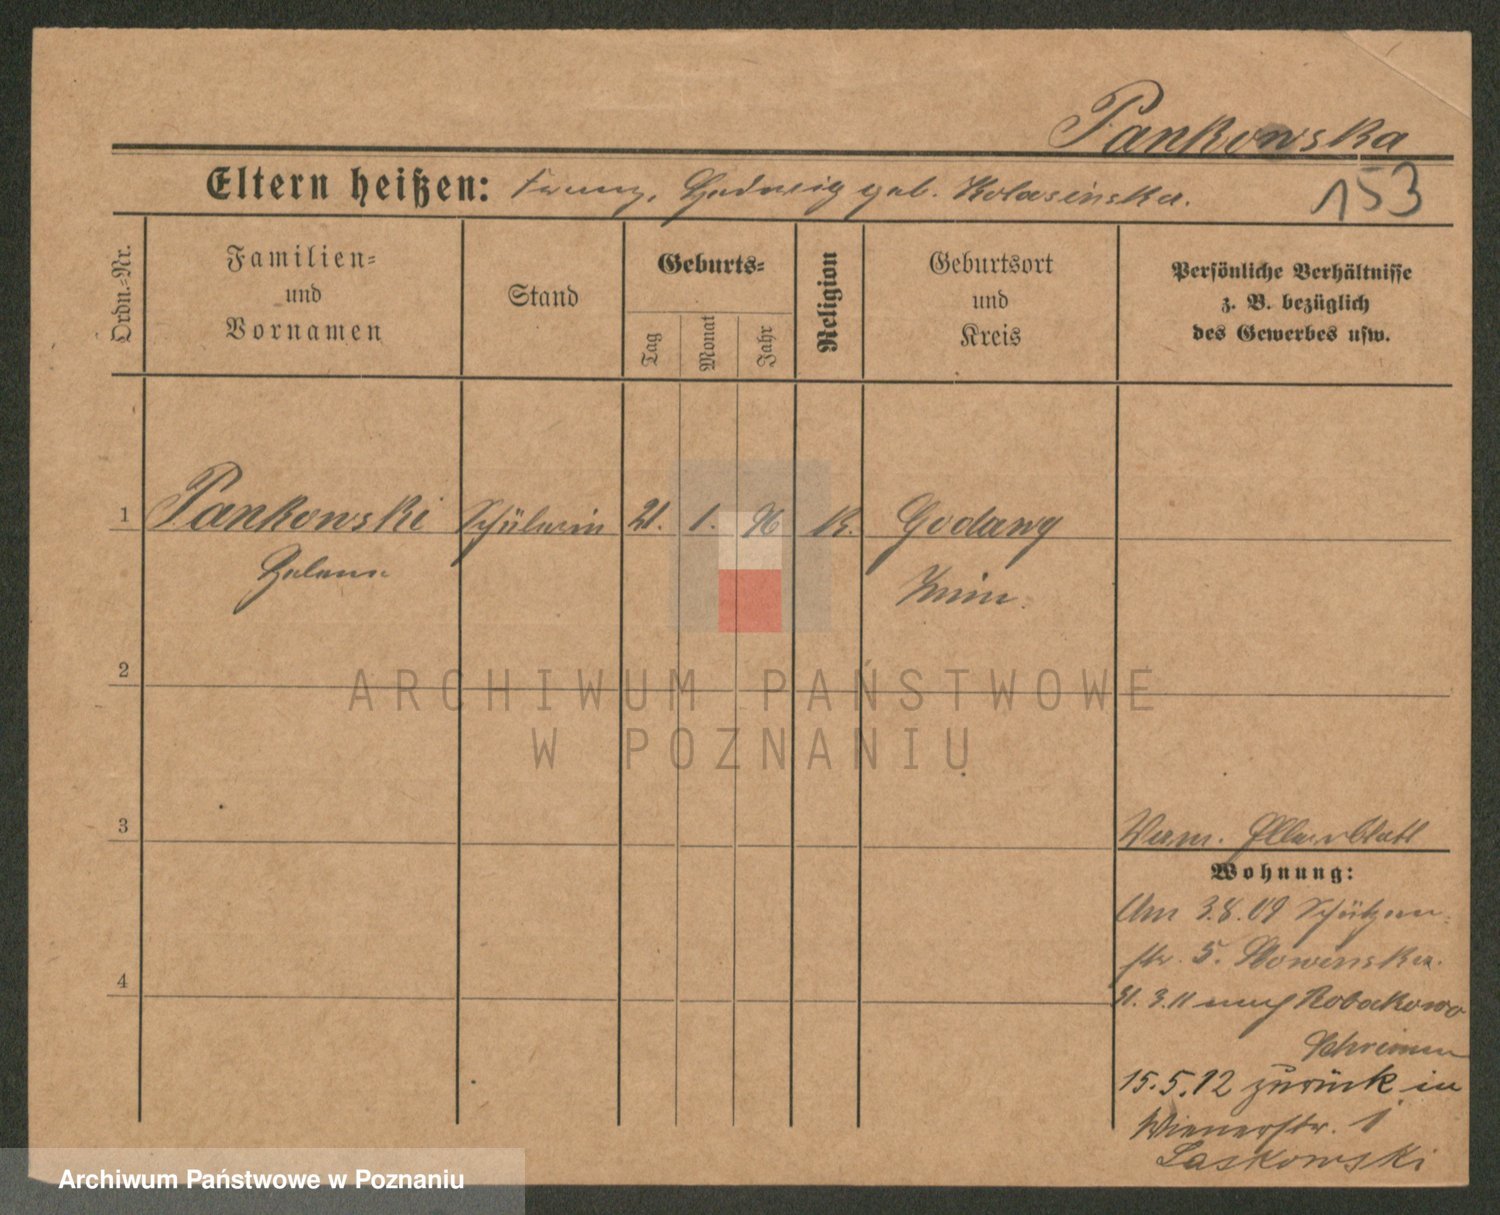 Pankowska
Eltern heißen: Franz, Hedwig geb. Kolasinska.
153
Ordn.-Nr.
Familien-
und
Vornamen
Stand
Geburts-
Tag
Monat
Jahr
Religion
Geburtsort
und
Kreis
Persönliche Verhältnisse
z. B. bezüglich
des Gewerbes usw.
1 Pankowski Schülerin 21. 1. 96 K. Godawy
Helene
Znin.
2
ARCHIWUM PAŃSTWOWE
W POZNANIU
3
Verm. Elternblatt
Wohnung:
Am 3.8.09 Schützen-
str. 5. Slowinska.
4
31. 3.11 nach Robakowo
Schrimm
15.5.12 zurück in
Wienerstr. 1
Laskowski
Archiwum Państwowe w Poznaniu